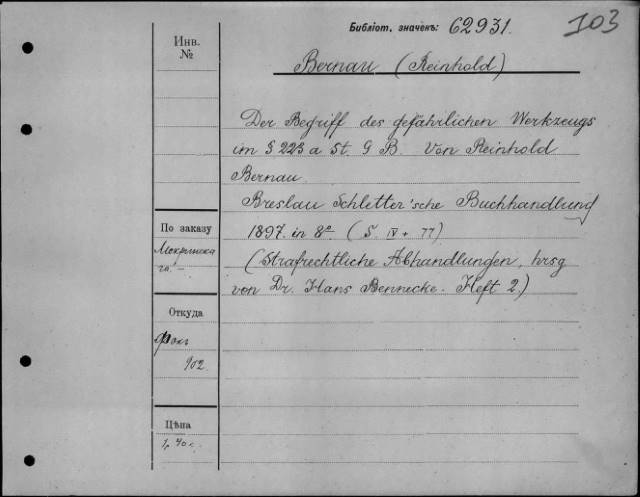 Библіот. значекъ: 62931.
103
Инв.
№
Bernau (Reinhold)
Der Begriff des gefährlichen Werkzeugs
im § 223 a St. G B. Von Reinhold
Bernau.
Breslau Schletter'sche Buchhandlung
1897. in 8° (S. IV + 77)
(Strafrechtliche Abhandlungen, hrsg
von Dr. Hans Bennecke. Heft 2.)
По заказу
Откуда
902.
Цѣна
1 р. 40 к.